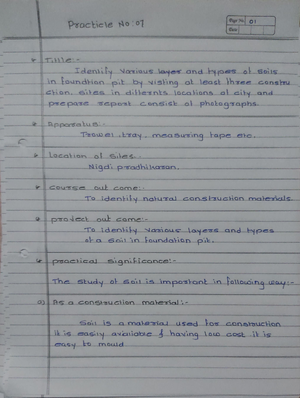 Practicle No:01
Page No. 01
Date
* Title:-
Identify various layer and types of soils
in foundtion pit by visting at least three constru
ction. sites in differnts locations of city and
prepare report consist of photographs.
* Apparatus:-
Trowel, tray, measuring tape etc.
* Location of sites.
Nigdi pradhikaran.
* course out come:-
To Identify natural construction materials.
* project out come:-
To Identify various layers and types
of a soil in foundation pit.
* practical significance:-
The study of soil is important in following way:-
a) As a construction material:-
Soil is a material used for construction
it is easily avaiable & having low cost it is
easy to mould